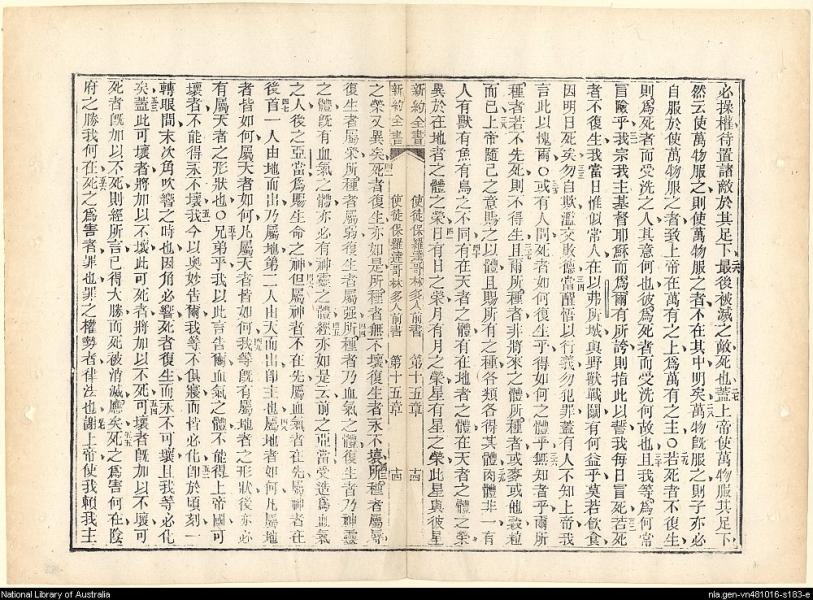 必操權待置諸敵於其足下最後被滅之敵死也蓋上帝使萬物服其足下
然云使萬物服之則使萬物服之者不在其中明矣萬物既服之則子亦必
自服於使萬物服之者致上帝在萬有之上為萬有之主○若死者不復生
則為死者而受洗之人其意何也彼為死者而受洗何故也且我等為何常
冒險乎我宗我主基督耶穌而為爾有所誇則指此以誓我每日冒死若死
者不復生我當日惟似常人在以弗所城與野獸戰鬭有何益乎莫若飲食
因明日死矣勿自欺濫交敗德當醒悟以行義勿犯罪蓋有人不知上帝我
言此以愧爾○或有人問死者如何復生乎得如何之體乎無知者乎爾所
種者若不先死則不得生且爾所種者非將來之體所種者或麥或他穀粒
而已上帝隨己之意賜之以體且賜所有之種各類各得其體肉體非一有
人有獸有魚有鳥之不同有在天者之體有在地者之體在天者之體之榮
異於在地者之體之榮日有日之榮月有月之榮星有星之榮此星與彼星
新約全書 使徒保羅達哥林多人前書 第十五章 十四
新約全書 使徒保羅達哥林多人前書 第十五章 十四
之榮又異矣死者復生亦如是所種者無不壞復生者永不壞所種者屬辱
復生者屬榮所種者屬弱復生者屬強所種者乃血氣之體復生者乃神靈
之體既有血氣之體亦必有神靈之體經亦如是云前之亞當受造為血氣
之人後之亞當為賜生命之神但屬神者不在先屬血氣者在先屬神者在
後首一人由地而出乃屬地第二人由天而出即主也屬地者如何凡屬地
者皆如何屬天者如何凡屬天者皆如何我等既有屬地者之形狀後亦必
有屬天者之形狀也○兄弟乎我以此言告爾血氣之體不能得上帝國可
壞者不能得永不壞我今以奧妙告爾我等不俱寢而皆必化即於頃刻一
轉眼間末次角吹響之時也因角必響死者復生而永不可壞且我等必化
矣蓋此可壞者將加以不壞此可死者將加以不死可壞者既加以不壞可
死者既加以不死則經所言已得大勝而死被消滅應矣死之為害何在陰
府之勝我何在死之為害者罪也罪之權勢者律法也謝上帝使我賴我主
National Library of Australia
nla.gen-vn481016-s183-e